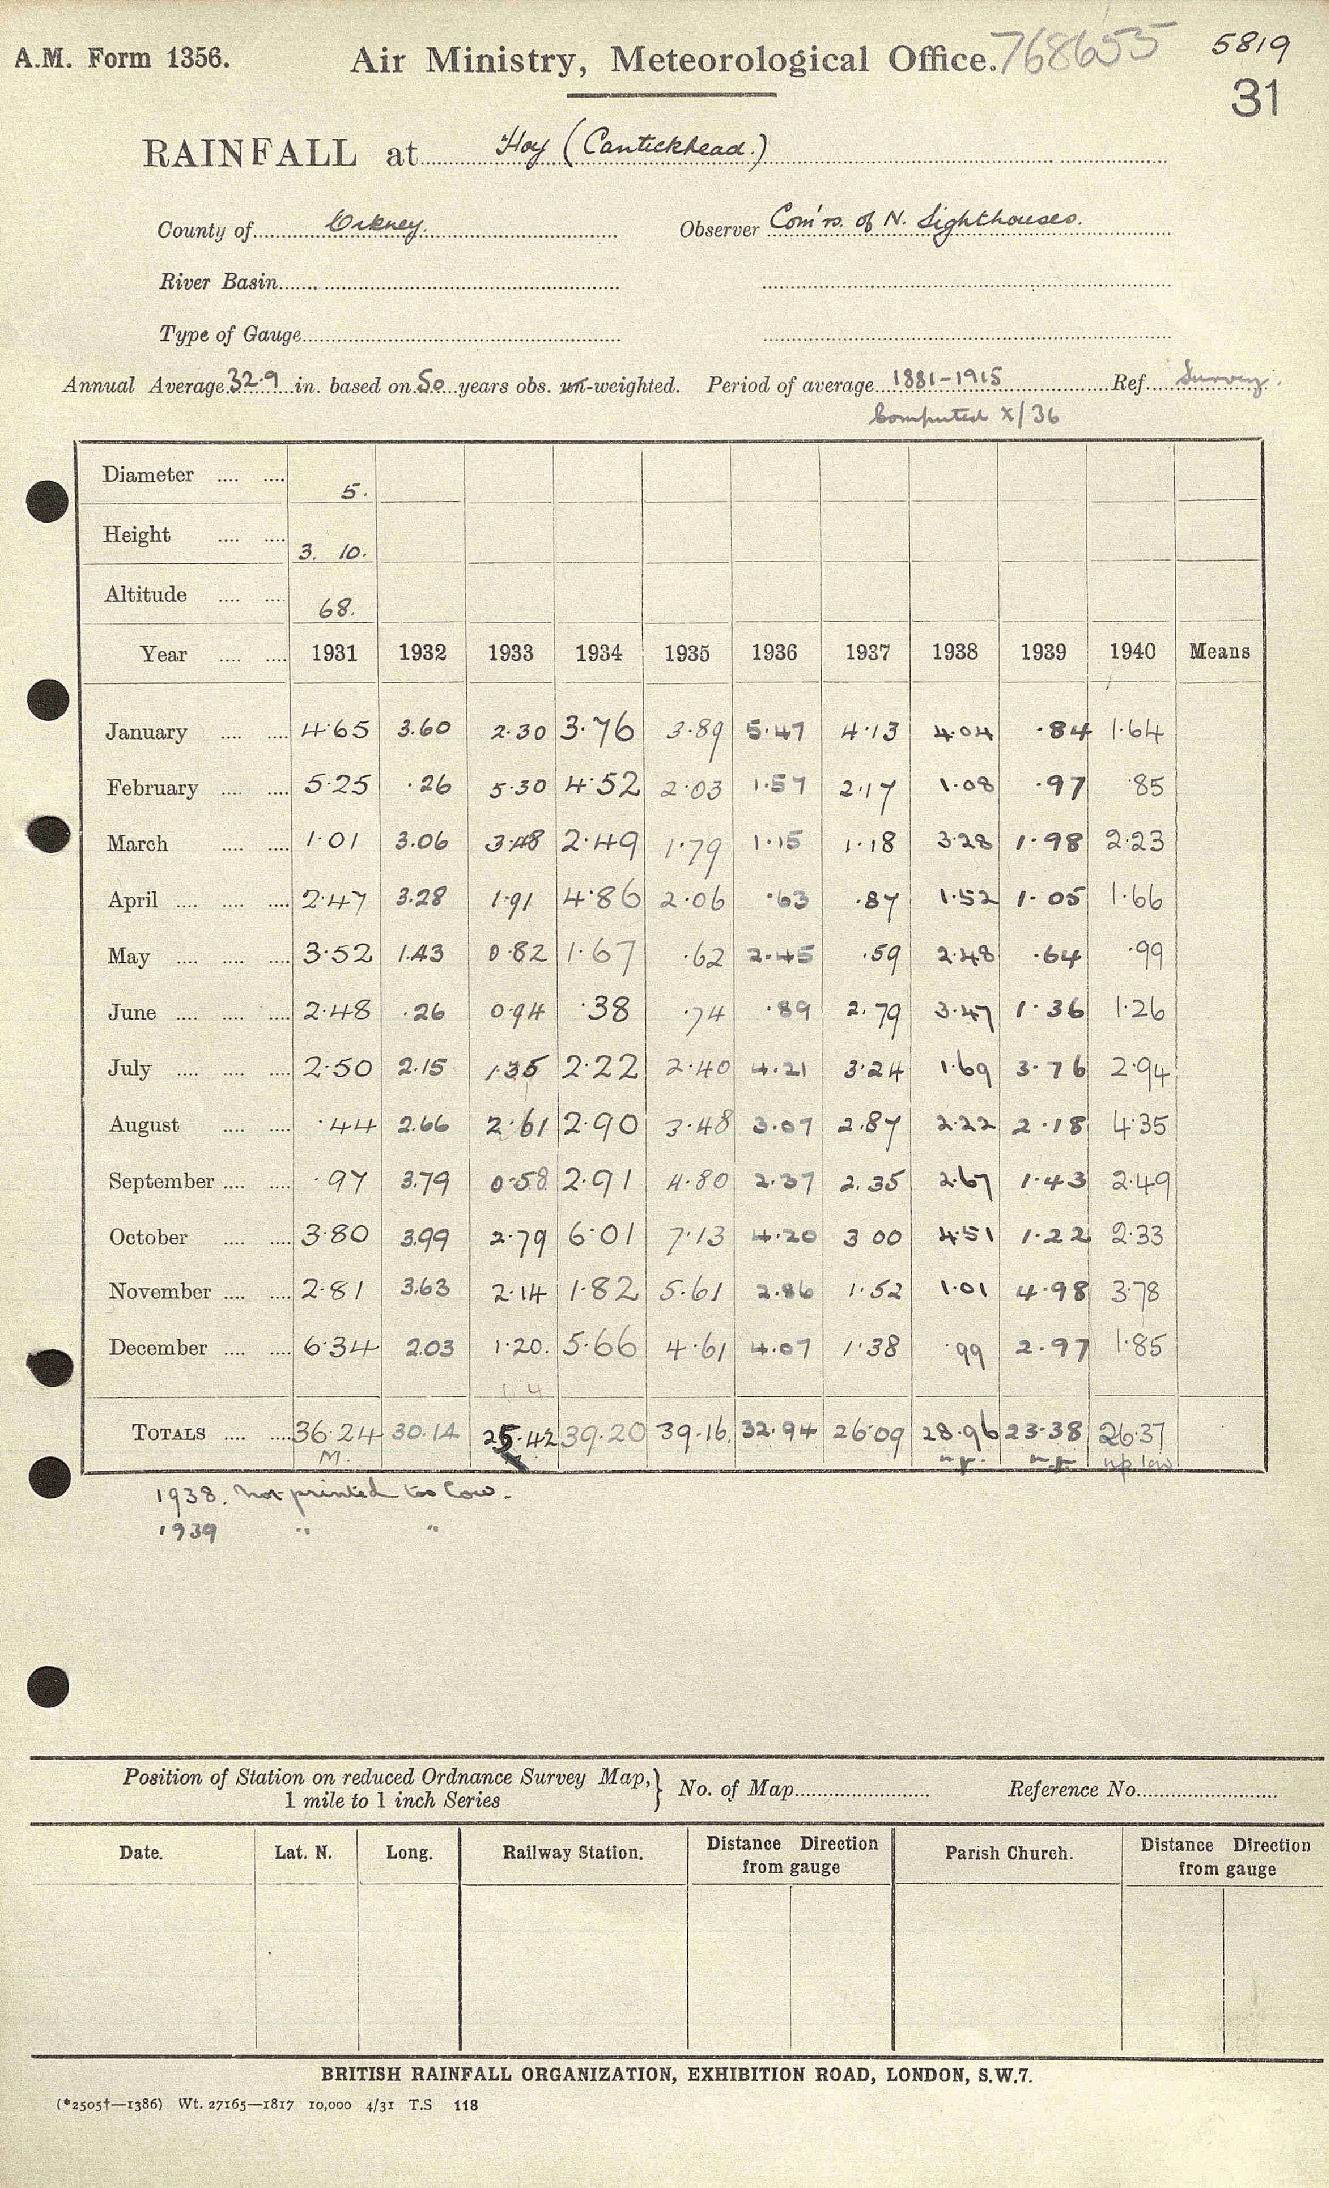 A.M. Form 1356. Air Ministry, Meteorological Office. 768655 5819
31
RAINFALL at Hoy (Cantickhead.)
County of Orkney. Observer Com'rs. of N. Lighthouses.
River Basin
Type of Gauge
Annual Average 32.9 in. based on 50 years obs. un-weighted. Period of average 1881-1915 Ref. Survey.
Computed X/36
Diameter 5.
Height 3. 10.
Altitude 68.
Year 1931 1932 1933 1934 1935 1936 1937 1938 1939 1940 Means
January 4.65 3.60 2.30 3.76 3.89 5.47 4.13 4.04 .84 1.64
February 5.25 .26 5.30 4.52 2.03 1.57 2.17 1.08 .97 .85
March 1.01 3.06 3.48 2.49 1.79 1.15 1.18 3.28 1.98 2.23
April 2.47 3.28 1.91 4.86 2.06 .63 .87 1.52 1.05 1.66
May 3.52 1.43 0.82 1.67 .62 2.45 .59 2.48 .64 .99
June 2.48 .26 0.94 .38 .74 .89 2.79 3.47 1.36 1.26
July 2.50 2.15 1.35 2.22 2.40 4.21 3.24 1.69 3.76 2.94
August .44 2.66 2.61 2.90 3.48 3.07 2.87 2.22 2.18 4.35
September .97 3.79 0.58 2.91 4.80 2.37 2.35 2.67 1.43 2.49
October 3.80 3.99 2.79 6.01 7.13 4.20 3 00 4.51 1.22 2.33
November 2.81 3.63 2.14 1.82 5.61 2.86 1.52 1.01 4.98 3.78
December 6.34 2.03 1.20. 5.66 4.61 4.07 1.38 .99 2.97 1.85
TOTALS 36.24 30.14 25.42 39.20 39.16 32.94 26.09 28.96 23.38 26.37
M. n.p. n.p. np low
1938. not printed too low.
1939 " "
Position of Station on reduced Ordnance Survey Map, } No. of Map Reference No.
1 mile to 1 inch Series
Date. Lat. N. Long. Railway Station. Distance Direction from gauge Parish Church. Distance Direction from gauge
BRITISH RAINFALL ORGANIZATION, EXHIBITION ROAD, LONDON, S.W.7.
(*2505†—1386) Wt. 27165—1817 10,000 4/31 T.S 118